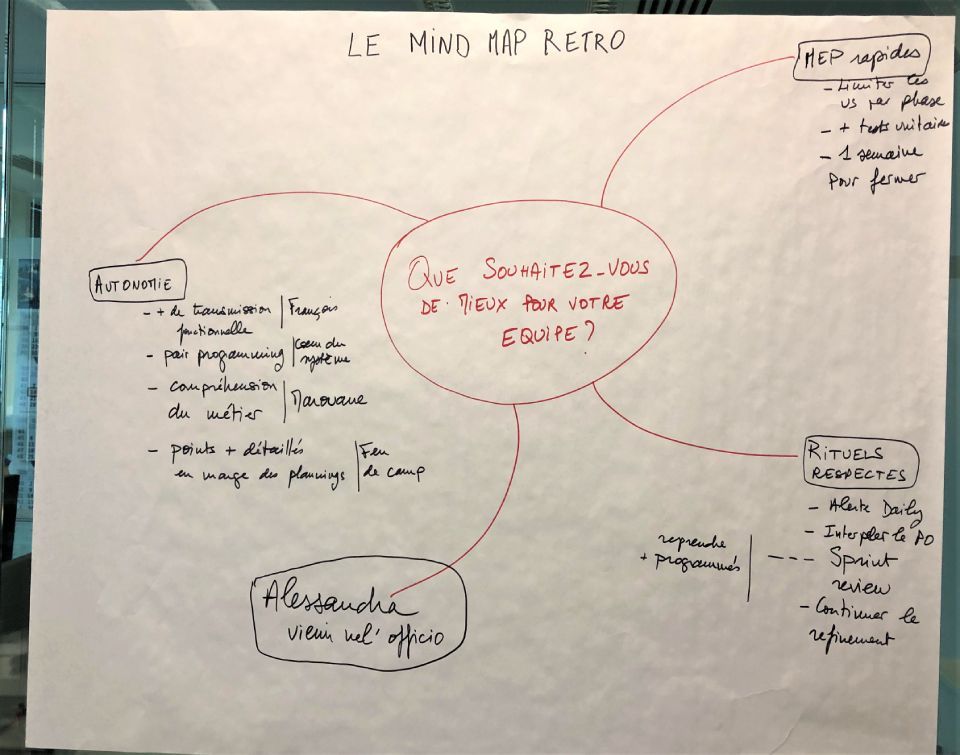 LE MIND MAP RETRO
MEP rapides
- Limiter les
US par phase
- + tests unitaire
- 1 semaine
pour fermer
QUE SOUHAITEZ-VOUS
DE MIEUX POUR VOTRE
EQUIPE ?
AUTONOMIE
- + de transmission | François
fonctionnelle
- pair programming | Coeur du
système
- compréhension
du métier | Marouane
- points + détaillés | Feu
en marge des plannings | de camp
RITUELS
RESPECTES
- Alerte Daily
- Interpeler le PO
--- Sprint
review
reprendre
+ programmés
- Continuer le
refinement
Alessandra
vieni nel' officio